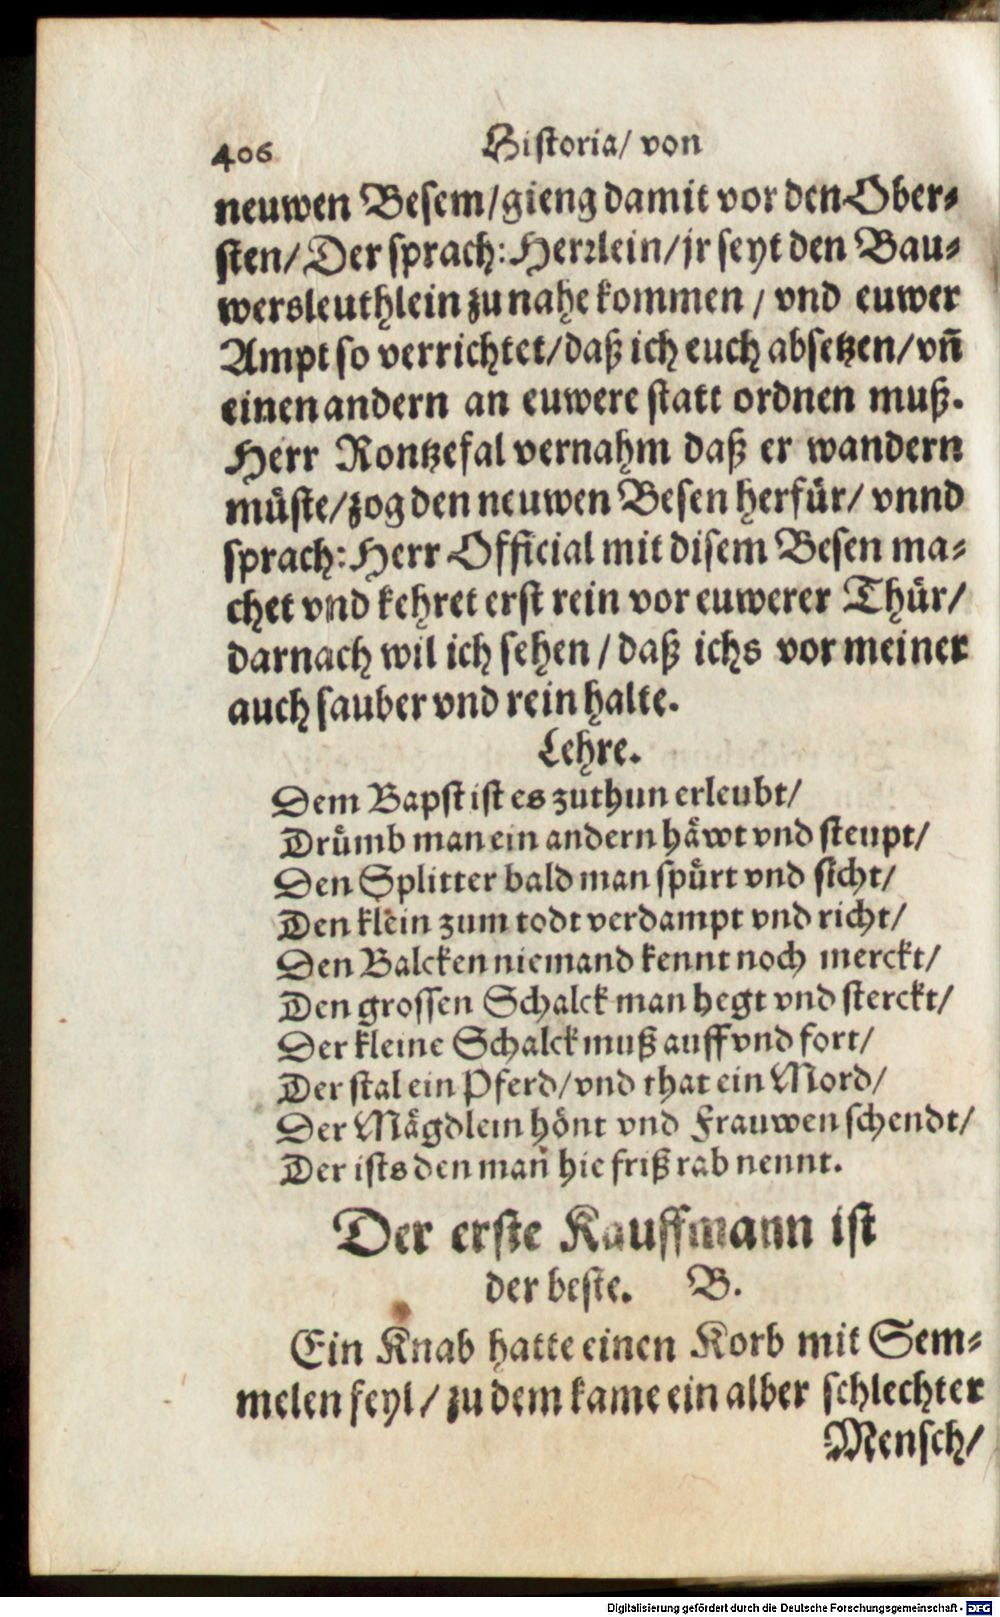 406 Historia/ von
neuwen Besem/gieng damit vor den Ober-
sten/ Der sprach: Herrlein/ jr seyt den Bau-
wersleuthlein zu nahe kommen / vnd euwer
Ampt so verrichtet/daß ich euch absetzen/ vñ
einen andern an euwere statt ordnen muß.
Herr Rontzefal vernahm daß er wandern
müste/zog den neuwen Besen herfür/ vnnd
sprach: Herr Official mit disem Besen ma-
chet vnd kehret erst rein vor euwerer Thür/
darnach wil ich sehen / daß ichs vor meiner
auch sauber vnd rein halte.
Lehre.
Dem Bapst ist es zuthun erleubt/
Drümb man ein andern häwt vnd steupt/
Den Splitter bald man spürt vnd sicht/
Den klein zum todt verdampt vnd richt/
Den Balcken niemand kennt noch merckt/
Den grossen Schalck man hegt vnd sterckt/
Der kleine Schalck muß auff vnd fort/
Der stal ein Pferd/vnd that ein Mord/
Der Mägdlein hönt vnd Frauwen schendt/
Der ists den mañ hie friß rab nennt.
Der erste Kauffmann ist
der beste. B.
Ein Knab hatte einen Korb mit Sem-
melen feyl/ zu dem kame ein alber schlechter
Mensch/
Digitalisierung gefördert durch die Deutsche Forschungsgemeinschaft - DFG